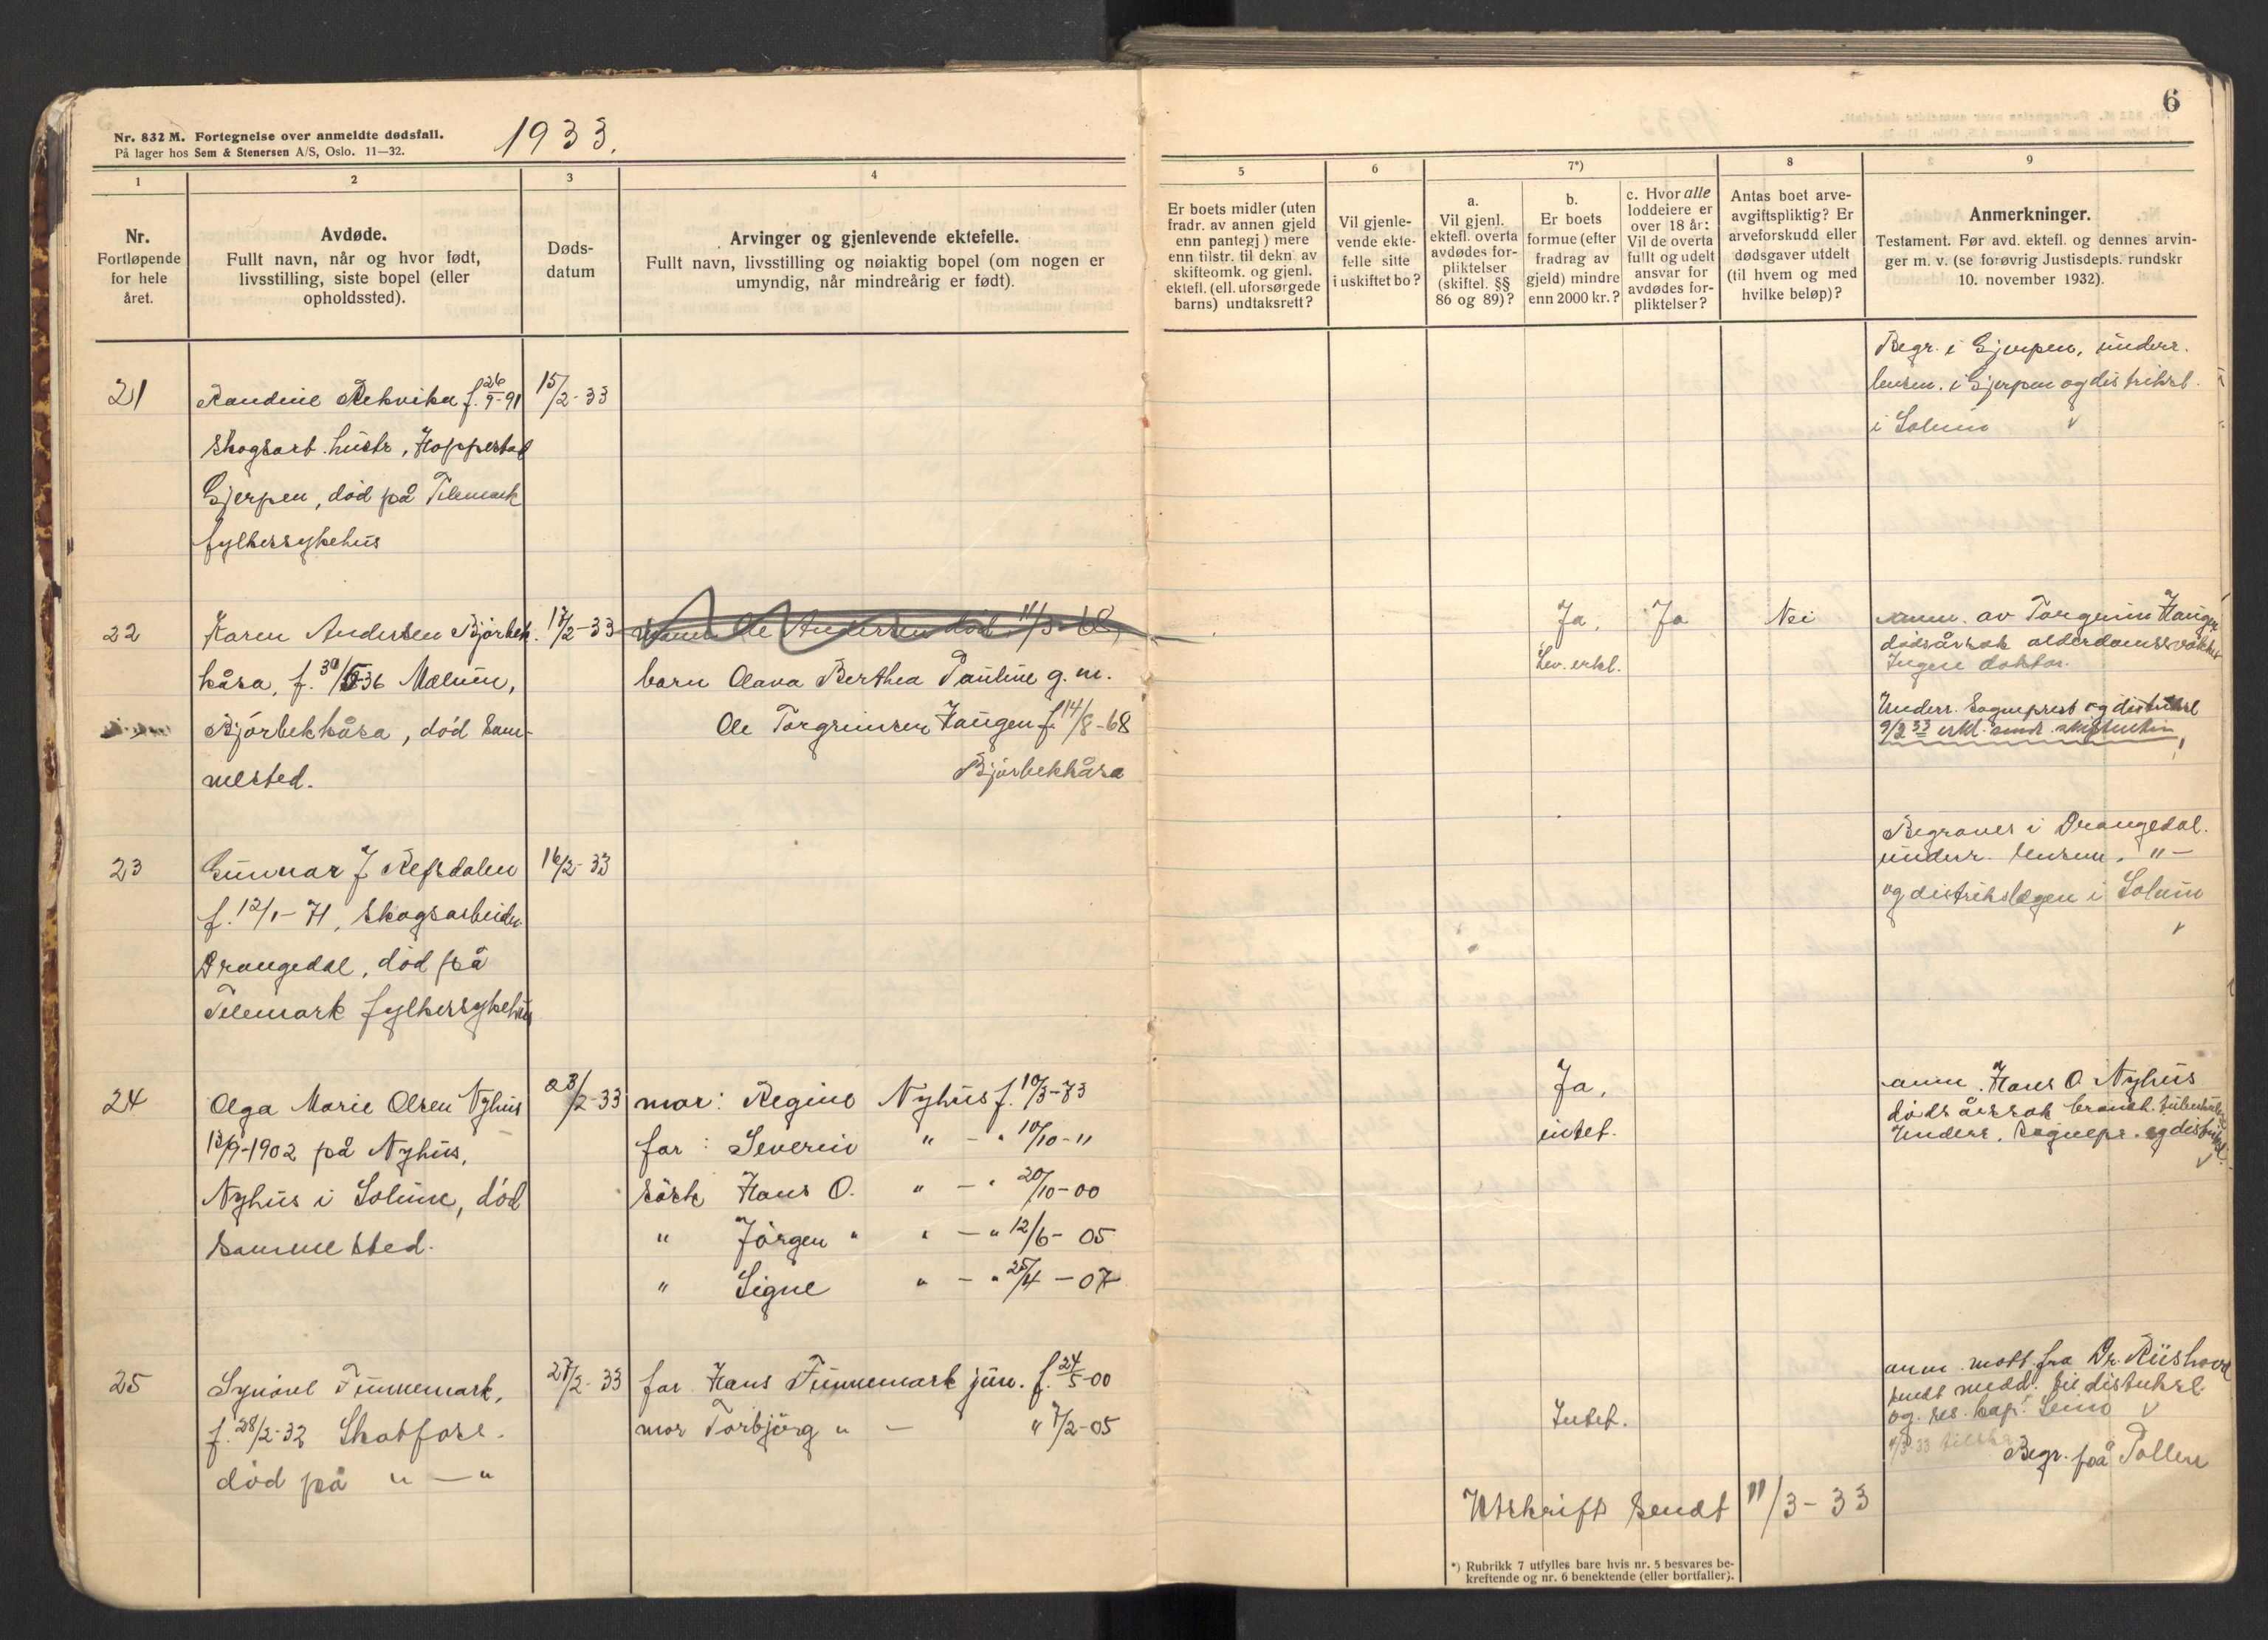 Nr. 832 M. Fortegnelse over anmeldte dødsfall.
På lager hos Sem & Stenersen A/S, Oslo. 11—32.
1933.
1
2
3
4
Nr.
Fortløpende
for hele
året.
Avdøde.
Fullt navn, når og hvor født,
livsstilling, siste bopel (eller
opholdssted).
Døds-
datum
Arvinger og gjenlevende ektefelle.
Fullt navn, livsstilling og nøiaktig bopel (om nogen er
umyndig, når mindreårig er født).
21
Randine Rekvika f. 26/9-91
15/2-33
skogsarb. hustr, Hoppestad
Gjerpen, död på Telemark
fylkessykehus
22
Karen Andersen Bjørbek-
17/2-33
kåsa, f. 30/5-36 Mælum,
Bjørbekkåsa, död sam-
mested.
Ole Andersen död 11/3-68
barn Olava Berthea Pauline g. m.
Ole Torgrimsen Haugen f. 14/8-68
Bjørbekkåsa
23
Gunnar J Refsdalen
16/2-33
f. 12/1-71, skogsarbeider
Drangedal, död på
Telemark fylkessykehus
24
Olga Marie Olsen Nyhus
23/2-33
13/9-1902 på Nyhus,
Nyhus i Solum, död
sammested.
mor: Regine Nyhus f. 10/3-73
far: Severin " - " 10/10-"
sösk Hans O. " - " 20/10-00
" Jörgen " " - " 12/6-05
" Signe " - " 25/4-07
25
Synöve Finnemark,
27/2-33
f. 28/2-32 Skotfoss.
död på " — "
far Hans Finnemark jun. f. 24/5-00
mor Torbjörg " - " 7/2-05
6
5
6
7*)
8
9
Er boets midler (uten
fradr. av annen gjeld
enn pantegj) mere
enn tilstr. til dekn. av
skifteomk. og gjenl.
ektefl. (ell. uforsørgede
barns) undtaksrett?
Vil gjenle-
vende ekte-
felle sitte
i uskiftet bo?
a.
Vil gjenl.
ektefl. overta
avdødes for-
pliktelser
(skiftel. §§
86 og 89)?
b.
Er boets
formue (efter
fradrag av
gjeld) mindre
enn 2000 kr.?
c. Hvor alle
loddeiere er
over 18 år:
Vil de overta
fullt og udelt
ansvar for
avdødes for-
pliktelser?
Antas boet arve-
avgiftspliktig? Er
arveforskudd eller
dødsgaver utdelt
(til hvem og med
hvilke beløp)?
Anmerkninger.
Testament. Før avd. ektefl. og dennes arvin-
ger m. v. (se forøvrig Justisdepts. rundskr
10. november 1932).
Begr. i Gjerpen, underr.
lensm. i Gjerpen og distriktsl.
i Solum
Ja.
Ja
Nei
Lev. erkl.
anm. av Torgrim Haugen
dödsårsak alderdomssvakhet
Ingen doktor.
Underr. Sogneprest og distriktsl
9/3 33 erkl. sendt skifteretten
Begraves i Drangedal.
underr. lensm. " -
og distriktslægen i Solum
Ja.
intet.
anm. Hans O. Nyhus
dödsårsak bronch.
Underr. Sognepr. og distriktsl.
Intet.
anm. mott. fra Dr. Riishovd
sendt medd. til distriktsl.
og res. kap.
Begr. på Tollen
Utskrift sendt 11/3-33
*) Rubrikk 7 utfylles bare hvis nr. 5 besvares be-
kreftende og nr. 6 benektende (eller bortfaller).